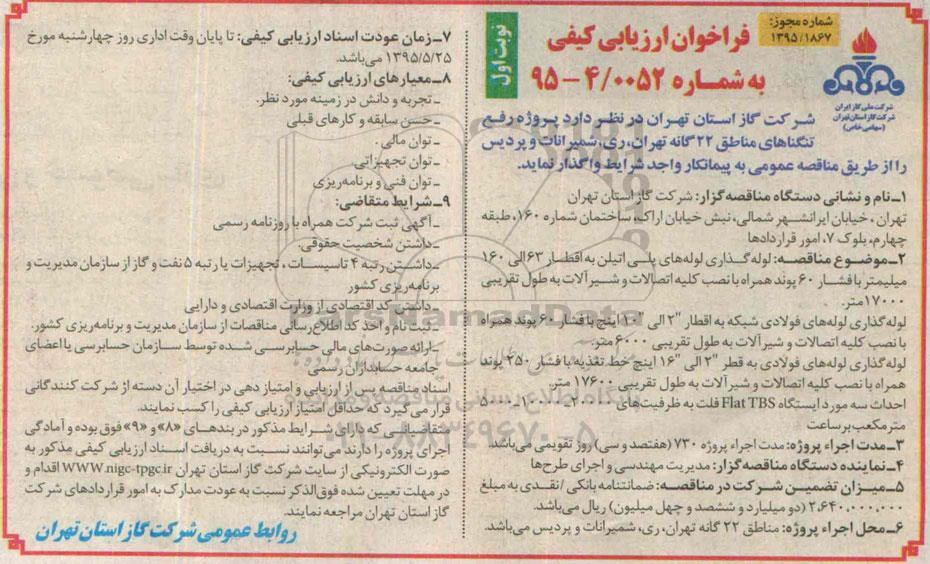 شماره مجوز:
۱۳۹۵/۱۸۶۷
نوبت اول
فراخوان ارزیابی کیفی
به شماره ۴/۰۰۵۲ – ۹۵
شرکت ملی گاز ایران
شرکت گاز استان تهران
(سهامی خاص)
شرکت گاز استان تهران در نظر دارد پروژه رفع
تنگناهای مناطق ۲۲ گانه تهران، ری، شمیرانات و پردیس
را از طریق مناقصه عمومی به پیمانکار واجد شرایط واگذار نماید.
۱ـ نام و نشانی دستگاه مناقصه‌گزار: شرکت گاز استان تهران
تهران، خیابان ایرانشهر شمالی، نبش خیابان اراک، ساختمان شماره ۱۶۰، طبقه
چهارم، بلوک ۷، امور قراردادها
۲ـ موضوع مناقصه: لوله‌گذاری لوله‌های پلی اتیلن به اقطار ۶۳ الی ۱۶۰
میلیمتر با فشار ۶۰ پوند همراه با نصب کلیه اتصالات و شیرآلات به طول تقریبی
۱۷۰۰۰ متر.
لوله‌گذاری لوله‌های فولادی شبکه به اقطار "۲ الی "۱۰ اینچ با فشار ۶۰ پوند همراه
با نصب کلیه اتصالات و شیرآلات به طول تقریبی ۶۰۰۰ متر.
لوله‌گذاری لوله‌های فولادی به قطر "۲ الی "۱۶ اینچ خط تغذیه با فشار ۲۵۰ پوند
همراه با نصب کلیه اتصالات و شیرآلات به طول تقریبی ۱۷۶۰۰ متر.
احداث سه مورد ایستگاه Flat TBS فلت به ظرفیت‌های
مترمکعب بر ساعت
۳ـ مدت اجراء پروژه: مدت اجراء پروژه ۷۳۰ (هفتصد و سی) روز تقویمی می‌باشد.
۴ـ نماینده دستگاه مناقصه‌گزار: مدیریت مهندسی و اجرای طرح‌ها
۵ـ میزان تضمین شرکت در مناقصه: ضمانتنامه بانکی / نقدی به مبلغ
۲.۶۴۰.۰۰۰.۰۰۰ (دو میلیارد و ششصد و چهل میلیون) ریال می‌باشد.
۶ـ محل اجراء پروژه: مناطق ۲۲ گانه تهران، ری، شمیرانات و پردیس می‌باشد.
۷ـ زمان عودت اسناد ارزیابی کیفی: تا پایان وقت اداری روز چهارشنبه مورخ
۱۳۹۵/۵/۲۵ می‌باشد.
۸ـ معیارهای ارزیابی کیفی:
ـ تجربه و دانش در زمینه مورد نظر.
ـ حسن سابقه و کارهای قبلی
ـ توان مالی.
ـ توان تجهیزاتی.
ـ توان فنی و برنامه‌ریزی
۹ـ شرایط متقاضی:
ـ آگهی ثبت شرکت همراه با روزنامه رسمی
ـ داشتن شخصیت حقوقی.
ـ داشتن رتبه ۴ تاسیسات، تجهیزات یا رتبه ۵ نفت و گاز از سازمان مدیریت و
برنامه‌ریزی کشور
ـ داشتن کد اقتصادی از وزارت اقتصادی و دارایی
ـ ثبت نام و اخذ کد اطلاع‌رسانی مناقصات از سازمان مدیریت و برنامه‌ریزی کشور.
ـ ارائه صورت‌های مالی حسابرسی شده توسط سازمان حسابرسی یا اعضای
جامعه حسابداران رسمی
اسناد مناقصه پس از ارزیابی و امتیاز دهی در اختیار آن دسته از شرکت کنندگانی
قرار می‌گیرد که حداقل امتیاز ارزیابی کیفی را کسب نمایند.
متقاضیانی که دارای شرایط مذکور در بندهای «۸» و «۹» فوق بوده و آمادگی
اجرای پروژه را دارند می‌توانند نسبت به دریافت اسناد ارزیابی کیفی مذکور به
صورت الکترونیکی از سایت شرکت گاز استان تهران WWW.nigc-tpgc.ir اقدام و
در مهلت تعیین شده فوق‌الذکر نسبت به عودت مدارک به امور قراردادهای شرکت
گاز استان تهران مراجعه نمایند.
روابط عمومی شرکت گاز استان تهران
ParsNamadData
۰۲۱-۸۸۳۴۹۶۷۰-۵